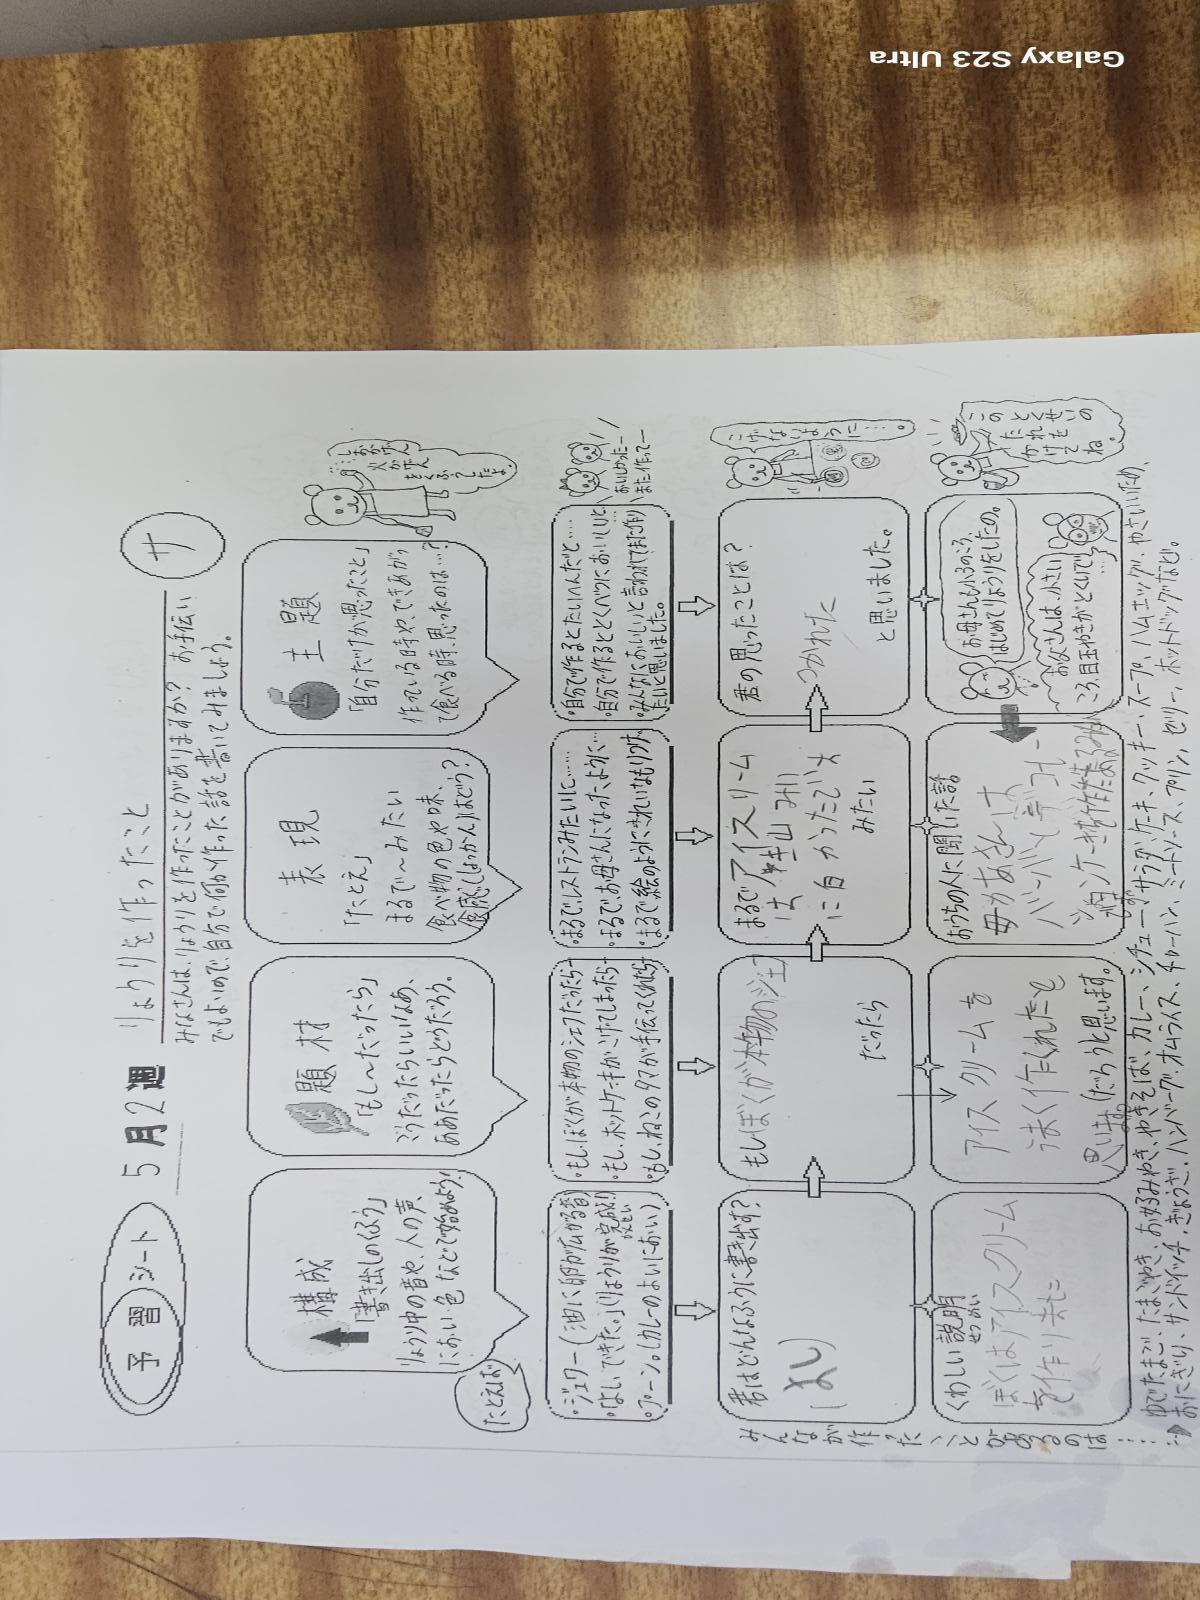 予習シート
5月2週
りょうりを作ったこと
サ
みなさんは、りょうりを作ったことがありますか? お手伝い
でもよいので、自分で何か作った話を書いてみましょう。
構成
「書き出しのくふう」
りょうり中の音や、人の声、
におい、色などで始めよう!
題材
「もし〜だったら」
こうだったらいいなあ、
ああだったらどうだろう。
表現
「たとえ」
まるで〜みたい
食べ物の色や味、
食感(しょっかん)はどう?
主題
「自分だけが思ったこと」
作っている時や、できあがっ
て食べる時、思ったのは…?
たとえば
・ジュワー(油に卵が広がる音)
・「よし、できた。」(りょうりが完成!)
・プーン。(カレーのよいにおい)
・もし、ぼくが本物のシェフだったら…
・もし、ホットケーキがこげてしまったら…
・もし、ねこのタマが手伝ってくれたら…
・まるで、レストランみたいに……
・まるで、お母さんになったように…
・まるで絵のようにきれいなもりつけ。
・自分で作るとたいへんだと…
・自分で作るととくべつにおいしいと
・みんなにおいしいと言われてまた作り
たいと思いました。
おいしかったー
また作ってー
君はどんなふうに書き出す?
「よし」
もしぼくが本物のジェフ
だったら
まるでアイスクリーム
みたい
君の思ったことは?
つかれた
と思いました。
こげないように……。
くわしい説明
せつめい
ぼくはアイスクリーム
を作りました
アイスクリームを
うまく作れたと
思います
(だろう)と思います。
おうちの人に聞いた話
母かあさんは
お母さんも小さいころ、
はじめてりょうりをしたの。
お父さんは小さい
ころ、目玉やきがとくいで……
みんなが作ったことがあるのは……
ゆでたまご、たまごやき、お好みやき、やきそば、カレー、シチュー、サラダ、ケーキ、クッキー、スープ、ハムエッグ、やさいいため、
おにぎり、サンドイッチ、ぎょうざ、ハンバーグ、オムライス、チャーハン、ミートソース、プリン、ゼリー、ホットドッグなど。
Galaxy S23 Ultra